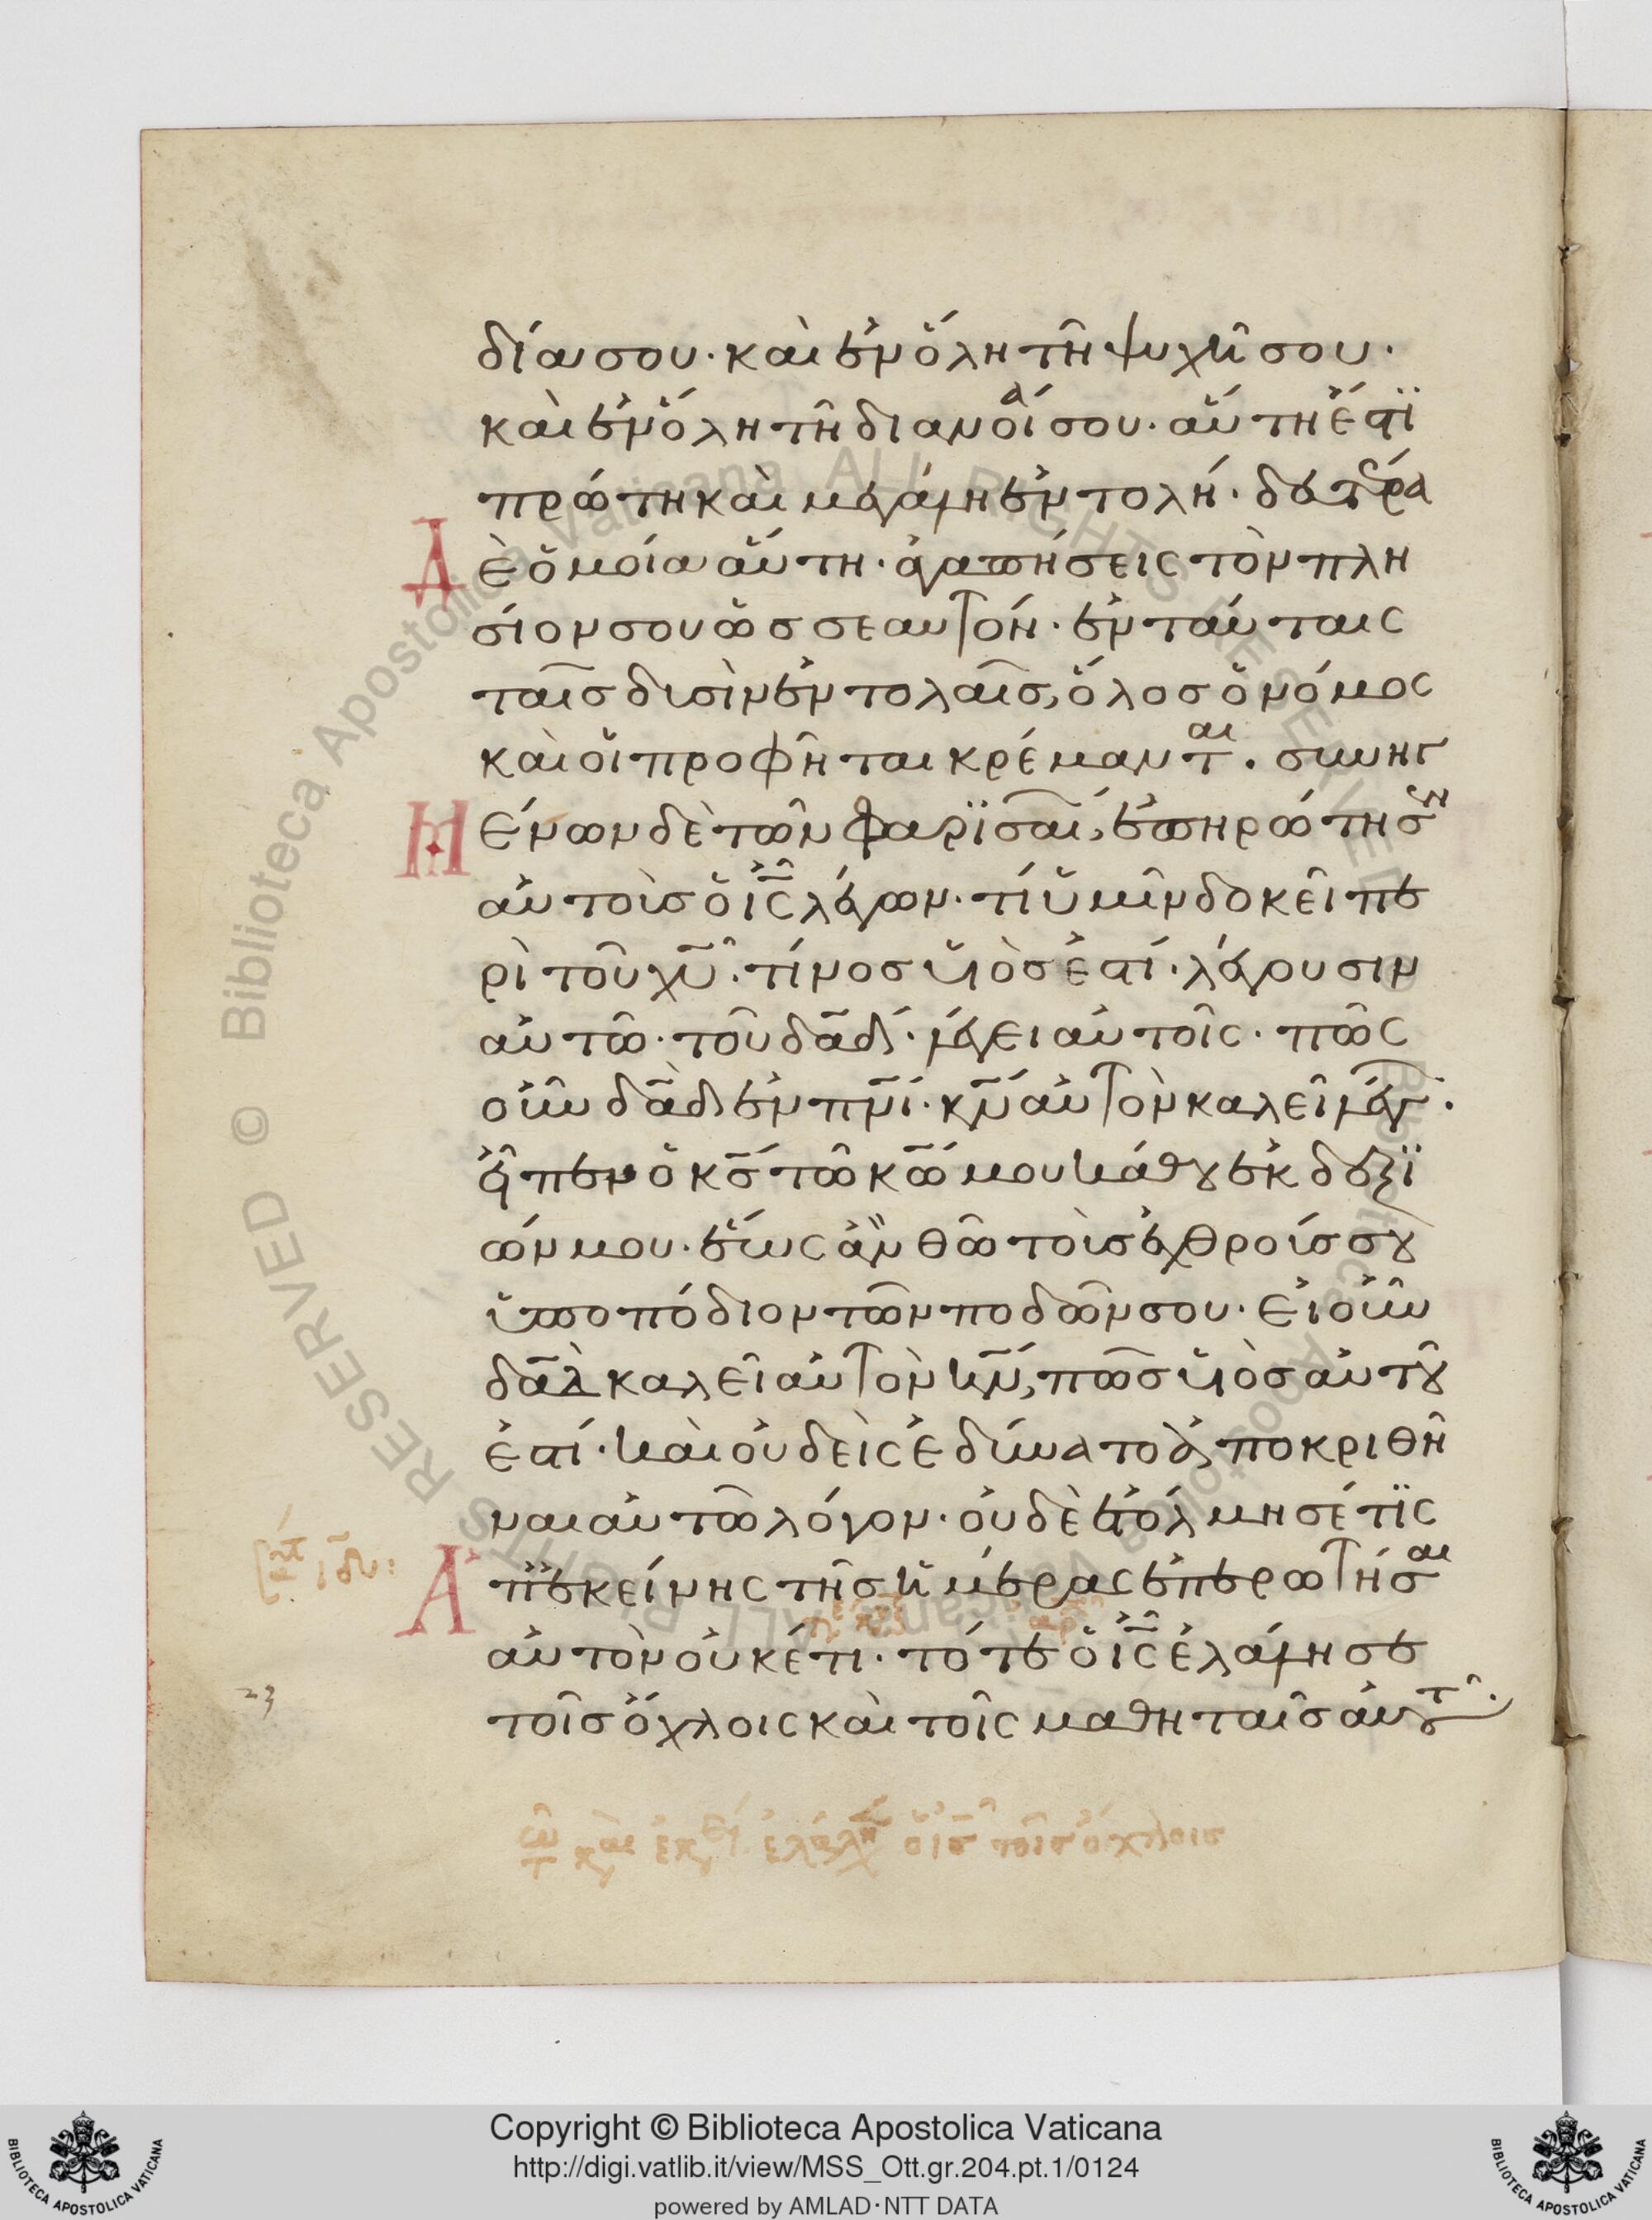 δίασου· καὶ ἐν ὅλη τῆ ψυχῆ σου·
καὶ ἐν ὅλη τῆ διανοίᾳ σου· αὕτη ἐστὶ
πρώτη καὶ μεγάλη ἐντολή· δευτέρα
Δὲ ὁμοία αὕτη· ἀγαπήσεις τὸν πλη
σίον σου ὡς σεαυτόν· ἐν ταύταις
ταῖς δυσὶν ἐντολαῖς, ὅλος ὁ νόμος
καὶ οἱ προφῆται κρέμανται. συνηγ
Μένων δὲ τῶν φαρισαί, ἐπηρώτησεν
αὐτοὶς ὁ ις λέγων· τί ὑμῖν δοκεῖ πε
ρὶ τοῦ χυ· τίνος υἱὸς ἐστί· λέγουσιν
αὐτῶ· τοῦ δαδ· λέγει αὐτοῖς· πῶς
οὖν δαδ ἐν πνι· κν αὐτὸν καλεῖ λέγ·
εἶπεν ὁ κς τῶ κω μου κάθου ἐκ δεξι
ῶν μου· ἕως ἂν θῶ τοὶς ἐχθροίς σου
ὑποπόδιον τῶν ποδῶν σου· εἰ οὖν
δαδ καλεῖ αὐτὸν κν, πῶς υἱὸς αὐτοῦ
ἐστί· καὶ οὐδεὶς ἐδύνατο ἀποκριθῆ
ναι αὐτῶ λόγον· οὐδὲ ἐτόλμησέ τις
Ἀπ ἐκείνης τῆς ἡμέρας ἐπερωτῆσαι
αὐτὸν οὐκέτι· τότε ὁ ις ἐλάλησε
23
τοῖς ὄχλοις καὶ τοῖς μαθηταῖς αὐτοῦ·
τω κ ἐκ ἐλάλη ὁ ις τοῖς ὄχλοις
Copyright © Biblioteca Apostolica Vaticana
http://digi.vatlib.it/view/MSS_Ott.gr.204.pt.1/0124
powered by AMLAD·NTT DATA
BIBLIOTECA APOSTOLICA VATICANA
BIBLIOTECA APOSTOLICA VATICANA
© Biblioteca Apostolica Vaticana ALL RIGHTS RESERVED
© Biblioteca Apostolica Vaticana ALL RIGHTS RESERVED